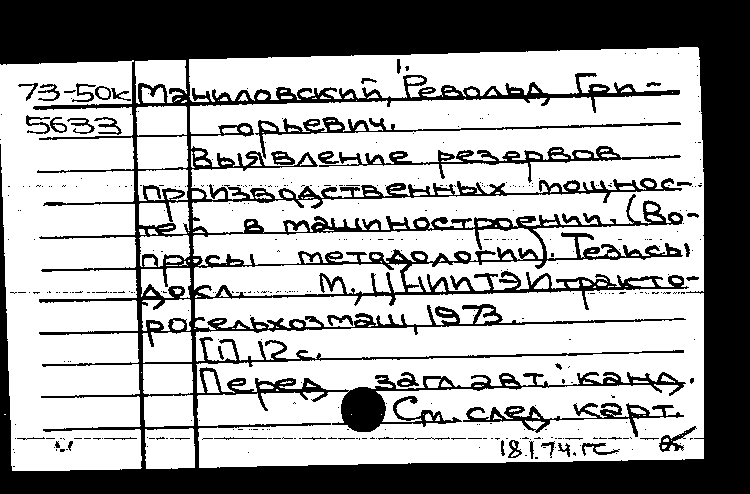 1.
73-50к Маниловский, Револьд Гри-
5633 горьевич.
Выявление резервов
производственных мощнос-
тей в машиностроении. (Во-
просы методологии). Тезисы
докл. М., ЦНИИТЭИтракто-
росельхозмаш, 1973.
[1], 12 с.
Перед загл. авт.: канд.
См. след. карт.
18.1.74. гс